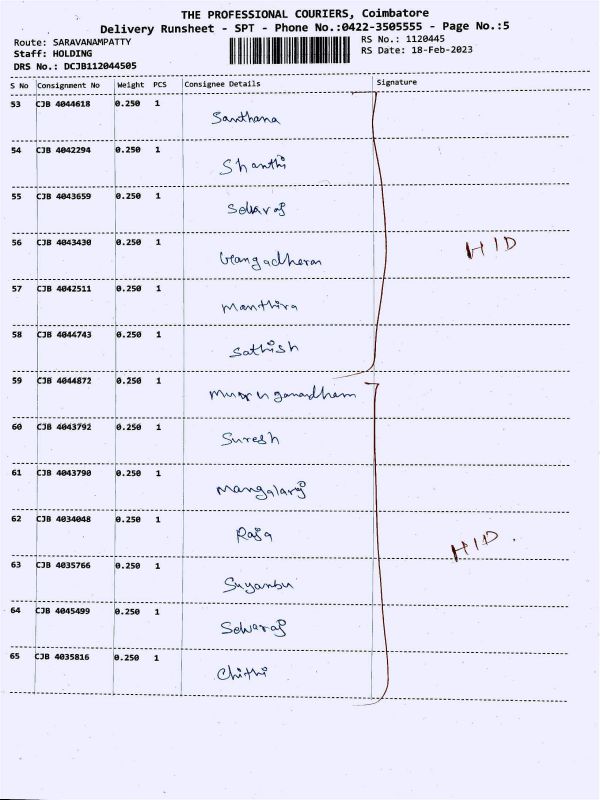 THE PROFESSIONAL COURIERS, Coimbatore
Delivery Runsheet - SPT - Phone No.:0422-3505555 - Page No.:5
Route: SARAVANAMPATTY
RS No.: 1120445
Staff: HOLDING
RS Date: 18-Feb-2023
DRS No.: DCJB112044505
S No Consignment No Weight PCS Consignee Details Signature
53 CJB 4044618 0.250 1 Santhana
54 CJB 4042294 0.250 1 Shanthi
55 CJB 4043659 0.250 1 Selvaraj
56 CJB 4043430 0.250 1 HID
57 CJB 4042511 0.250 1 Manthira
58 CJB 4044743 0.250 1 Sathish
59 CJB 4044872 0.250 1
60 CJB 4043792 0.250 1 Suresh
61 CJB 4043790 0.250 1 Mangalaraj
62 CJB 4034048 0.250 1 Raja HID.
63 CJB 4035766 0.250 1 Suyambu
64 CJB 4045499 0.250 1 Selvaraj
65 CJB 4035816 0.250 1 Chithi